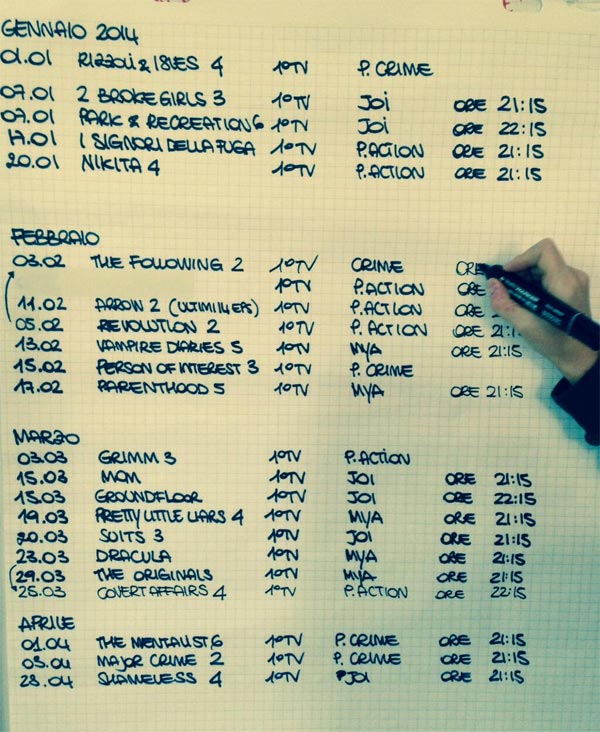 GENNAIO 2014
01.01 RIZZOLI & ISLES 4 1°TV P. CRIME
07.01 2 BROKE GIRLS 3 1°TV JOI ORE 21:15
07.01 PARK & RECREATION 6 1°TV JOI ORE 22:15
17.01 I SIGNORI DELLA FUGA 1°TV P.ACTION ORE 21:15
20.01 NIKITA 4 1°TV P.ACTION ORE 21:15
FEBBRAIO
03.02 THE FOLLOWING 2 1°TV CRIME ORE
1°TV P.ACTION ORE
11.02 ARROW 2 (ULTIMI 14 EPS) 1°TV P.ACTION ORE
05.02 REVOLUTION 2 1°TV P. ACTION ORE 21:1
13.02 VAMPIRE DIARIES 5 1°TV MYA ORE 21:15
15.02 PERSON OF INTEREST 3 1°TV P. CRIME
17.02 PARENTHOOD 5 1°TV MYA ORE 21:15
MARZO
03.03 GRIMM 3 1°TV P.ACTION
15.03 MOM 1°TV JOI ORE 21:15
15.03 GROUNDFLOOR 1°TV JOI ORE 22:15
19.03 PRETTY LITTLE LIARS 4 1°TV MYA ORE 21:15
20.03 SUITS 3 1°TV JOI ORE 21:15
23.03 DRACULA 1°TV MYA ORE 21:15
29.03 THE ORIGINALS 1°TV MYA ORE 21:15
25.03 COVERT AFFAIRS 4 1°TV P.ACTION ORE 22:15
APRILE
01.04 THE MENTALIST 6 1°TV P. CRIME ORE 21:15
05.04 MAJOR CRIME 2 1°TV P. CRIME ORE 21:15
28.04 SHAMELESS 4 1°TV JOI ORE 21:15